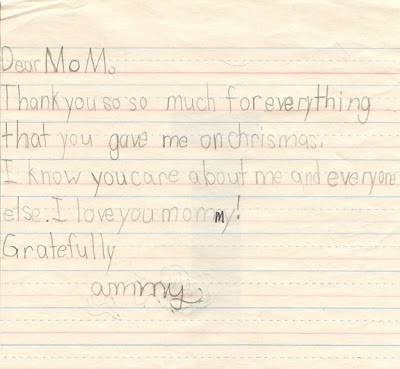 Dear MoM.
Thank you so so much for everything
that you gave me on chrismas.
I know you care about me and everyone
else. I love you mommy!
Gratefully
ammy